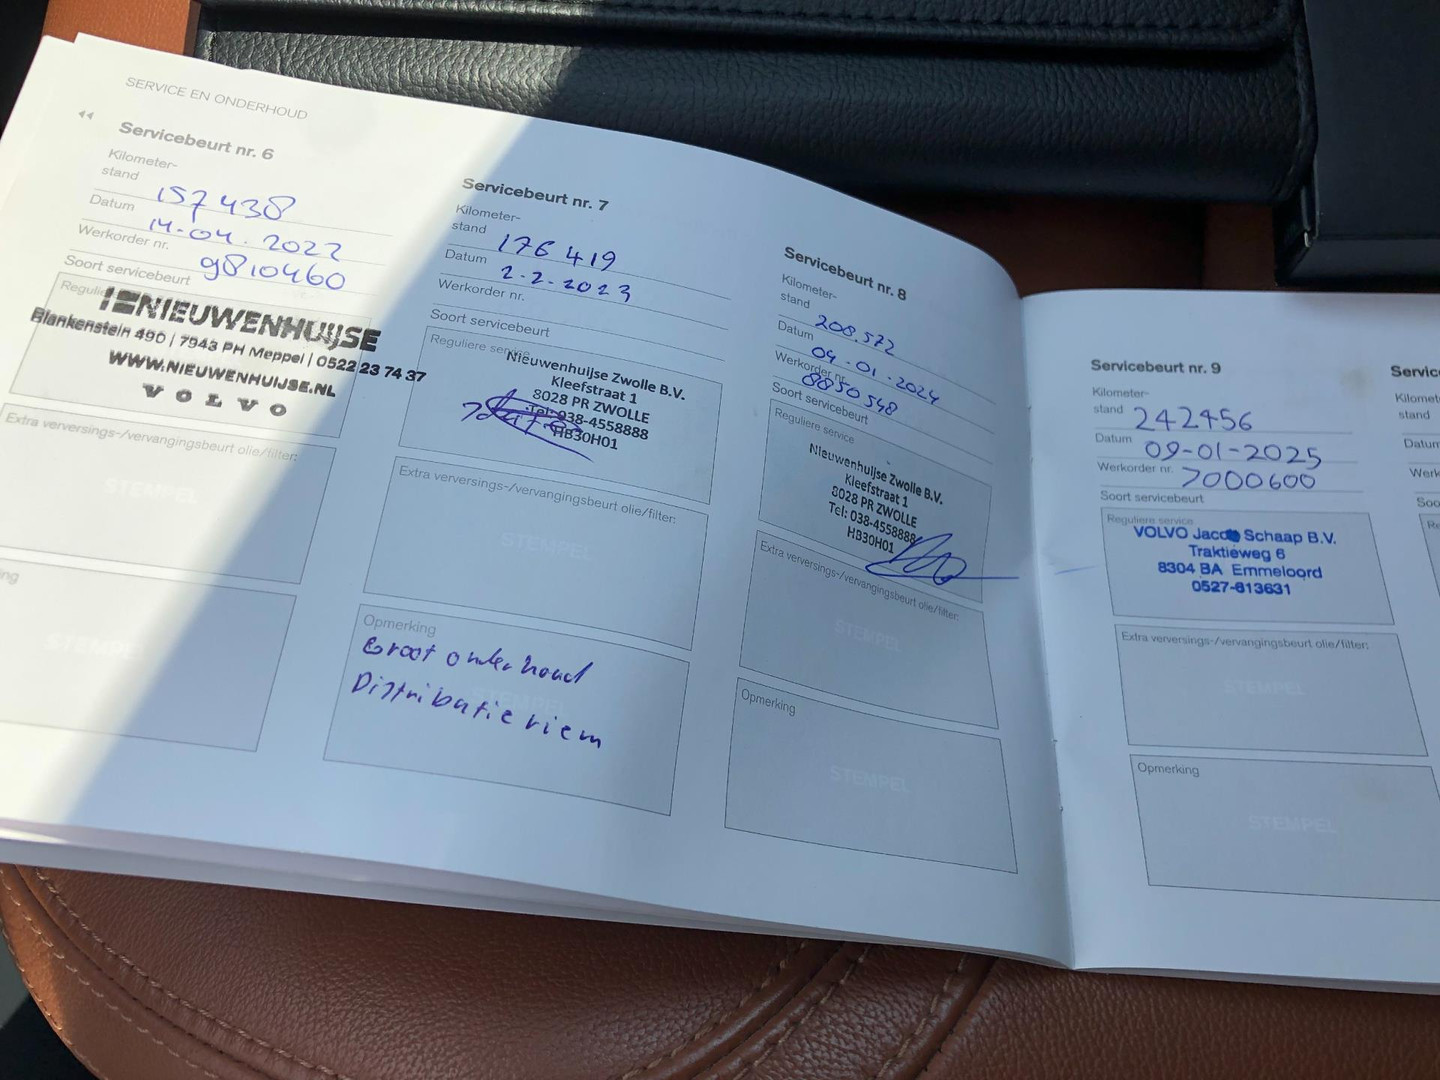 SERVICE EN ONDERHOUD
Servicebeurt nr. 6
Kilometer-
stand 157438
Datum 14-04-2022
Werkorder nr. 9810460
Soort servicebeurt
NIEUWENHUIJSE
Blankenstein 490 | 7943 PH Meppel | 0522 23 74 37
WWW.NIEUWENHUIJSE.NL
VOLVO
Extra verversings-/vervangingsbeurt olie/filter:
STEMPEL
STEMPEL
Servicebeurt nr. 7
Kilometer-
stand 176 419
Datum 2-2-2023
Werkorder nr.
Soort servicebeurt
Reguliere service
Nieuwenhuijse Zwolle B.V.
Kleefstraat 1
8028 PR ZWOLLE
Tel: 038-4558888
HB30H01
Extra verversings-/vervangingsbeurt olie/filter:
STEMPEL
Opmerking
Groot onderhoud
Distributie riem
Servicebeurt nr. 8
Kilometer-
stand 208.572
Datum 04-01-2024
Werkorder nr. 8850548
Soort servicebeurt
Reguliere service
Nieuwenhuijse Zwolle B.V.
Kleefstraat 1
8028 PR ZWOLLE
Tel: 038-4558888
HB30H01
Extra verversings-/vervangingsbeurt olie/filter:
STEMPEL
Opmerking
STEMPEL
Servicebeurt nr. 9
Kilometer-
stand 242456
Datum 09-01-2025
Werkorder nr. 7000600
Soort servicebeurt
Reguliere service
VOLVO Jacob Schaap B.V.
Traktieweg 6
8304 BA Emmeloord
0527-613631
Extra verversings-/vervangingsbeurt olie/filter:
STEMPEL
Opmerking
STEMPEL